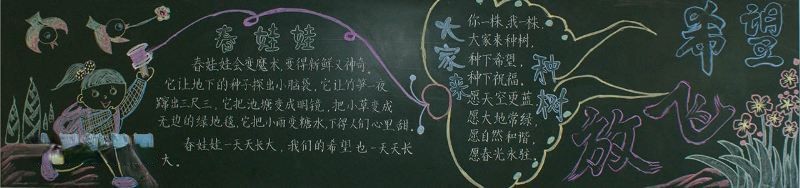 春娃娃
春娃娃会变魔术,变得新鲜又神奇。
它让地下的种子探出小脑袋,它让竹笋一夜
蹿出二尺三。它把池塘变成明镜,把小草变成
无边的绿地毯,它把小雨变糖水,下得人们心里甜。
春娃娃一天天长大,我们的希望也一天天长
大。
大家来种树
你一株,我一株,
大家来种树。
种下希望,
种下祝福。
愿天空更蓝,
愿大地常绿,
愿自然和谐,
愿春光永驻。
放飞希望